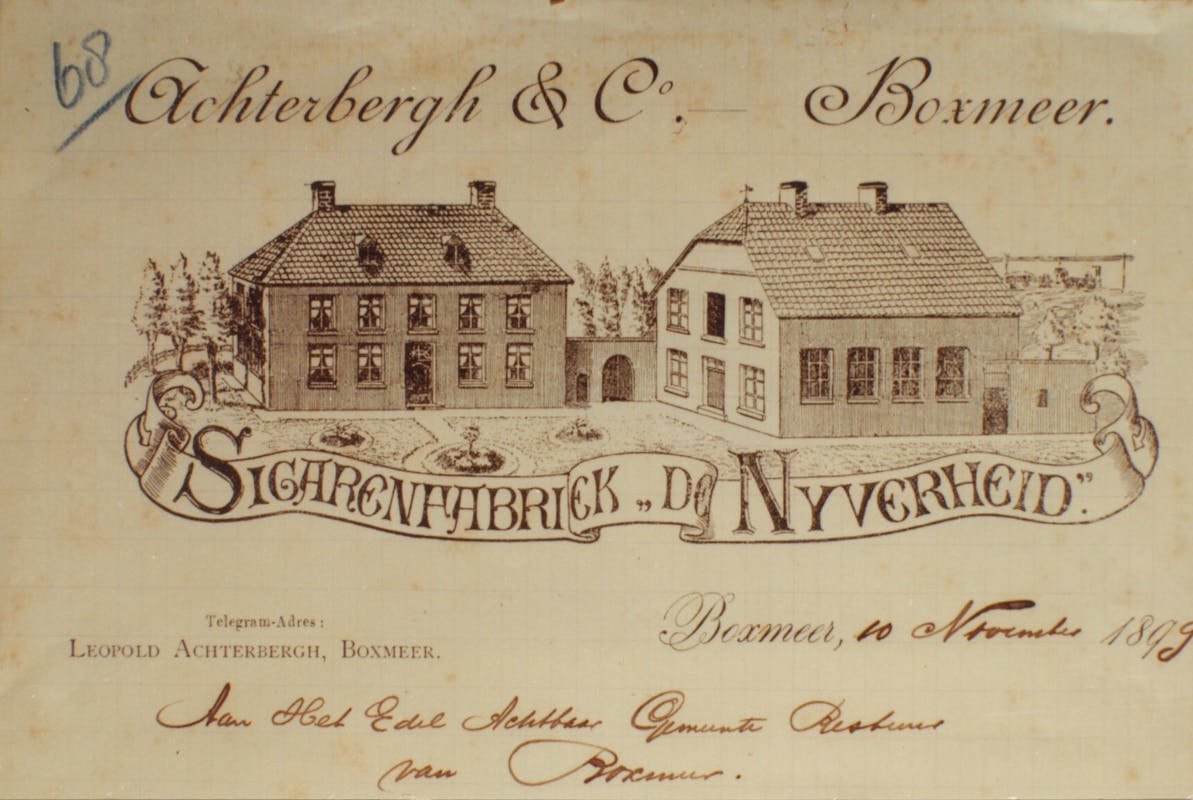 68
Achterbergh & Co. — Boxmeer.
SIGARENFABRIEK „DE NYVERHEID.”
Telegram-Adres:
LEOPOLD ACHTERBERGH, BOXMEER.
Boxmeer, 10 November 1899
Aan Het Edel Achtbaar Gemeente Bestuur
van Boxmeer.